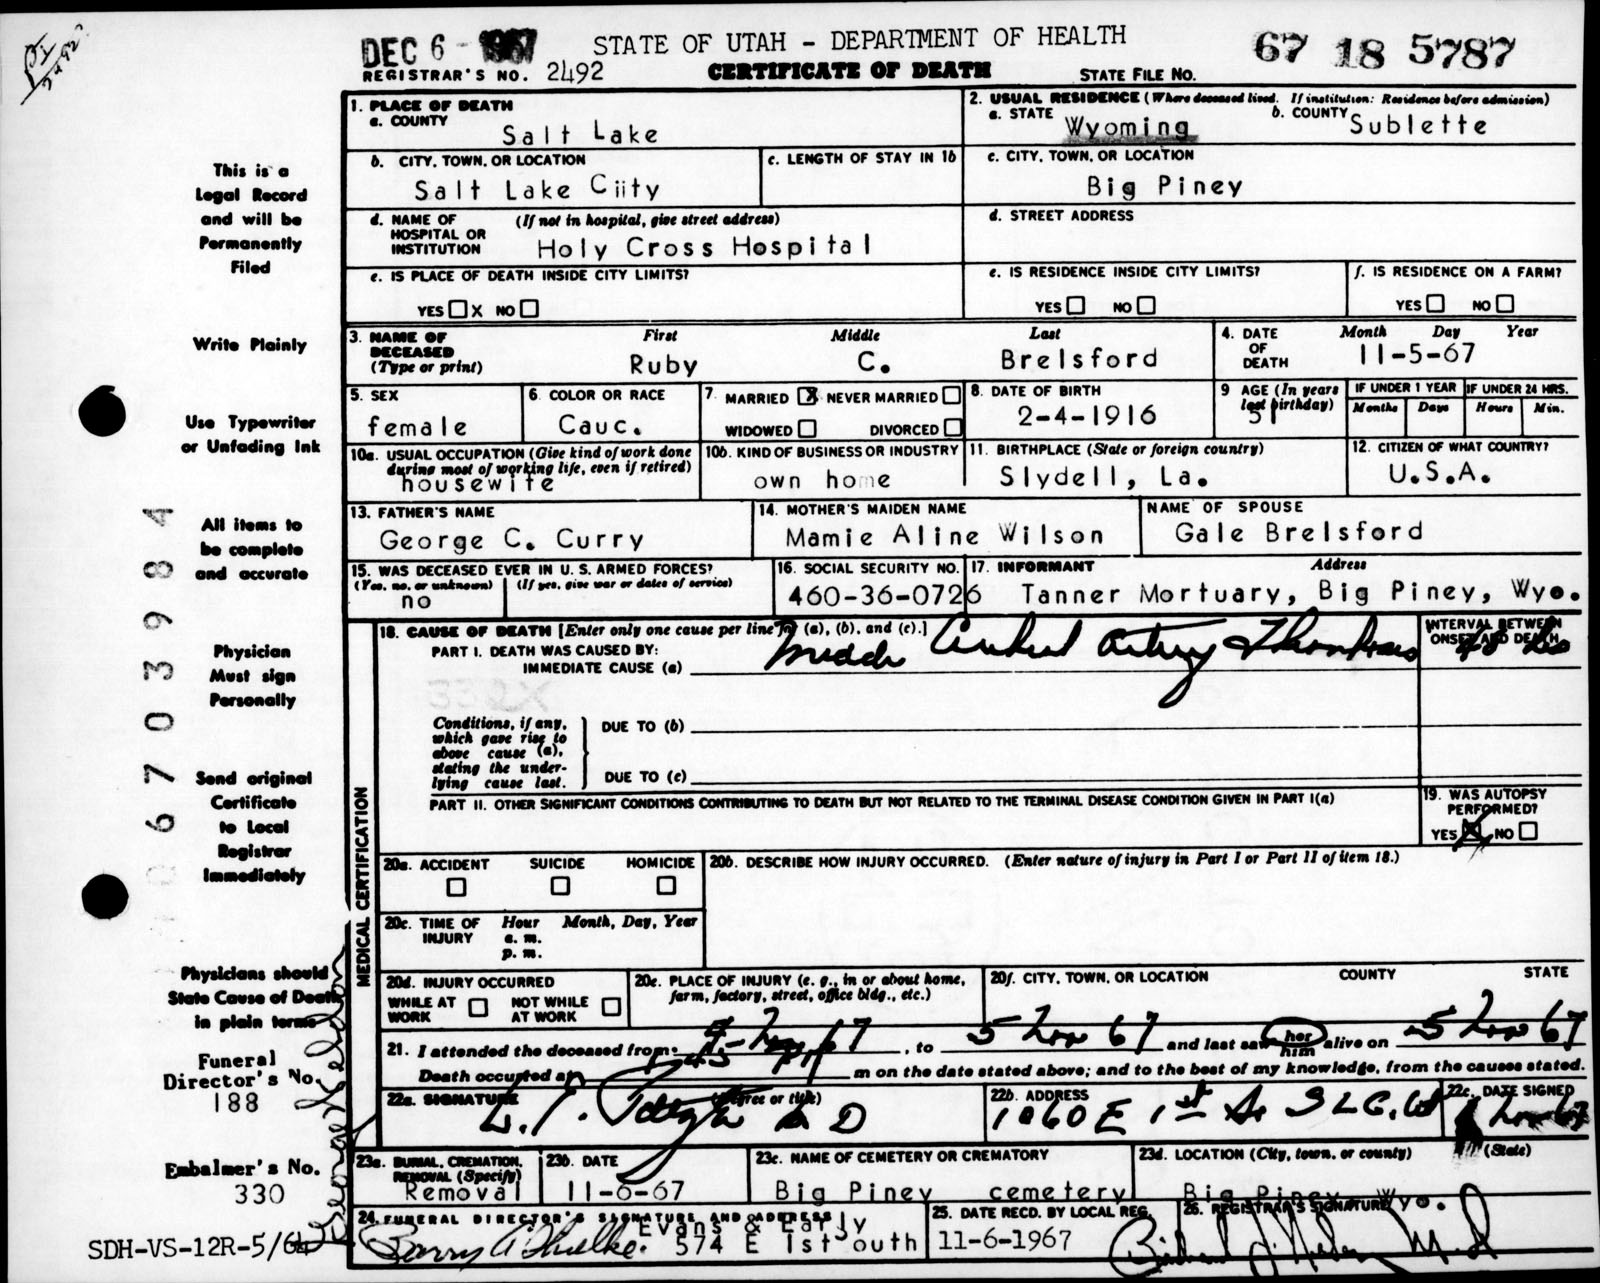 DEC 6 - 1967
STATE OF UTAH - DEPARTMENT OF HEALTH
67 18 5787
REGISTRAR'S NO. 2492
CERTIFICATE OF DEATH
STATE FILE NO.
1. PLACE OF DEATH
a. COUNTY
Salt Lake
2. USUAL RESIDENCE (Where deceased lived. If institution: Residence before admission)
a. STATE Wyoming
b. COUNTY Sublette
b. CITY, TOWN, OR LOCATION
Salt Lake Ciity
c. LENGTH OF STAY IN 1b
c. CITY, TOWN, OR LOCATION
Big Piney
d. NAME OF HOSPITAL OR INSTITUTION
(If not in hospital, give street address)
Holy Cross Hospital
d. STREET ADDRESS
e. IS PLACE OF DEATH INSIDE CITY LIMITS?
YES X NO
e. IS RESIDENCE INSIDE CITY LIMITS?
YES NO
f. IS RESIDENCE ON A FARM?
YES NO
3. NAME OF DECEASED
(Type or print)
First Middle Last
Ruby C. Brelsford
4. DATE OF DEATH
Month Day Year
11-5-67
5. SEX
female
6. COLOR OR RACE
Cauc.
7. MARRIED X NEVER MARRIED
WIDOWED DIVORCED
8. DATE OF BIRTH
2-4-1916
9 AGE (In years last birthday)
51
IF UNDER 1 YEAR
Months Days
IF UNDER 24 HRS.
Hours Min.
10a. USUAL OCCUPATION (Give kind of work done
during most of working life, even if retired)
housewife
10b. KIND OF BUSINESS OR INDUSTRY
own home
11. BIRTHPLACE (State or foreign country)
Slydell, La.
12. CITIZEN OF WHAT COUNTRY?
U.S.A.
13. FATHER'S NAME
George C. Curry
14. MOTHER'S MAIDEN NAME
Mamie Aline Wilson
NAME OF SPOUSE
Gale Brelsford
15. WAS DECEASED EVER IN U. S. ARMED FORCES?
(Yes, no, or unknown) (If yes, give war or dates of service)
no
16. SOCIAL SECURITY NO.
460-36-0726
17. INFORMANT Address
Tanner Mortuary, Big Piney, Wyo.
MEDICAL CERTIFICATION
18. CAUSE OF DEATH [Enter only one cause per line for (a), (b), and (c).]
PART I. DEATH WAS CAUSED BY:
IMMEDIATE CAUSE (a) Middle Cerebral Artery Thrombosis
INTERVAL BETWEEN
ONSET AND DEATH
48 hrs
Conditions, if any,
which gave rise to
above cause (a),
stating the under-
lying cause last.
DUE TO (b)
DUE TO (c)
PART II. OTHER SIGNIFICANT CONDITIONS CONTRIBUTING TO DEATH BUT NOT RELATED TO THE TERMINAL DISEASE CONDITION GIVEN IN PART I(a)
19. WAS AUTOPSY
PERFORMED?
YES X NO
20a. ACCIDENT SUICIDE HOMICIDE
20b. DESCRIBE HOW INJURY OCCURRED. (Enter nature of injury in Part I or Part II of item 18.)
20c. TIME OF INJURY
Hour Month, Day, Year
a. m.
p. m.
20d. INJURY OCCURRED
WHILE AT WORK
NOT WHILE AT WORK
20e. PLACE OF INJURY (e. g., in or about home,
farm, factory, street, office bldg., etc.)
20f. CITY, TOWN, OR LOCATION COUNTY STATE
21. I attended the deceased from Nov 67, to 5 Nov 67 and last saw her him alive on 5 Nov 67
Death occurred at m on the date stated above; and to the best of my knowledge, from the causes stated.
22a. SIGNATURE (Degree or title)
22b. ADDRESS
1060 E 1st So SLC, Ut
22c. DATE SIGNED
Nov 67
23a. BURIAL, CREMATION,
REMOVAL (Specify)
Removal
23b. DATE
11-6-67
23c. NAME OF CEMETERY OR CREMATORY
Big Piney cemetery
23d. LOCATION (City, town, or county) (State)
Big Piney Wyo.
24. FUNERAL DIRECTOR'S SIGNATURE AND ADDRESS
Evans & Early
574 E 1st South
25. DATE RECD. BY LOCAL REG.
11-6-1967
26. REGISTRAR'S SIGNATURE
M.D
This is a
Legal Record
and will be
Permanently
Filed
Write Plainly
Use Typewriter
or Unfading Ink
All items to
be complete
and accurate
Physician
Must sign
Personally
Send original
Certificate
to Local
Registrar
Immediately
Physicians should
State Cause of Death
in plain terms
Funeral
Director's No.
188
Embalmer's No.
330
SDH-VS-12R-5/64
06703984